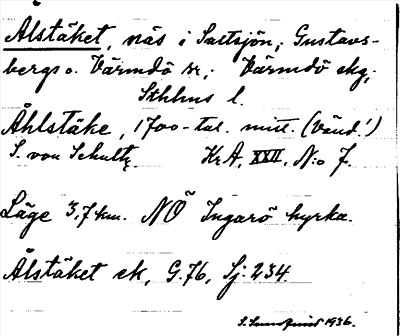 Ålstäket, näs i Saltsjön; Gustavs-
bergs o. Värmdö sr; Värmdö skg;
Sthlms l.
Åhlstäke, 1700-tal. mitt. (Vänd!)
S. von Schultz. KrA, XXII, N:o 7.
Läge 3,7 km. NÖ Ingarö kyrka.
Ålstäket ek, G.76, Sj: 234.
S. 1936.